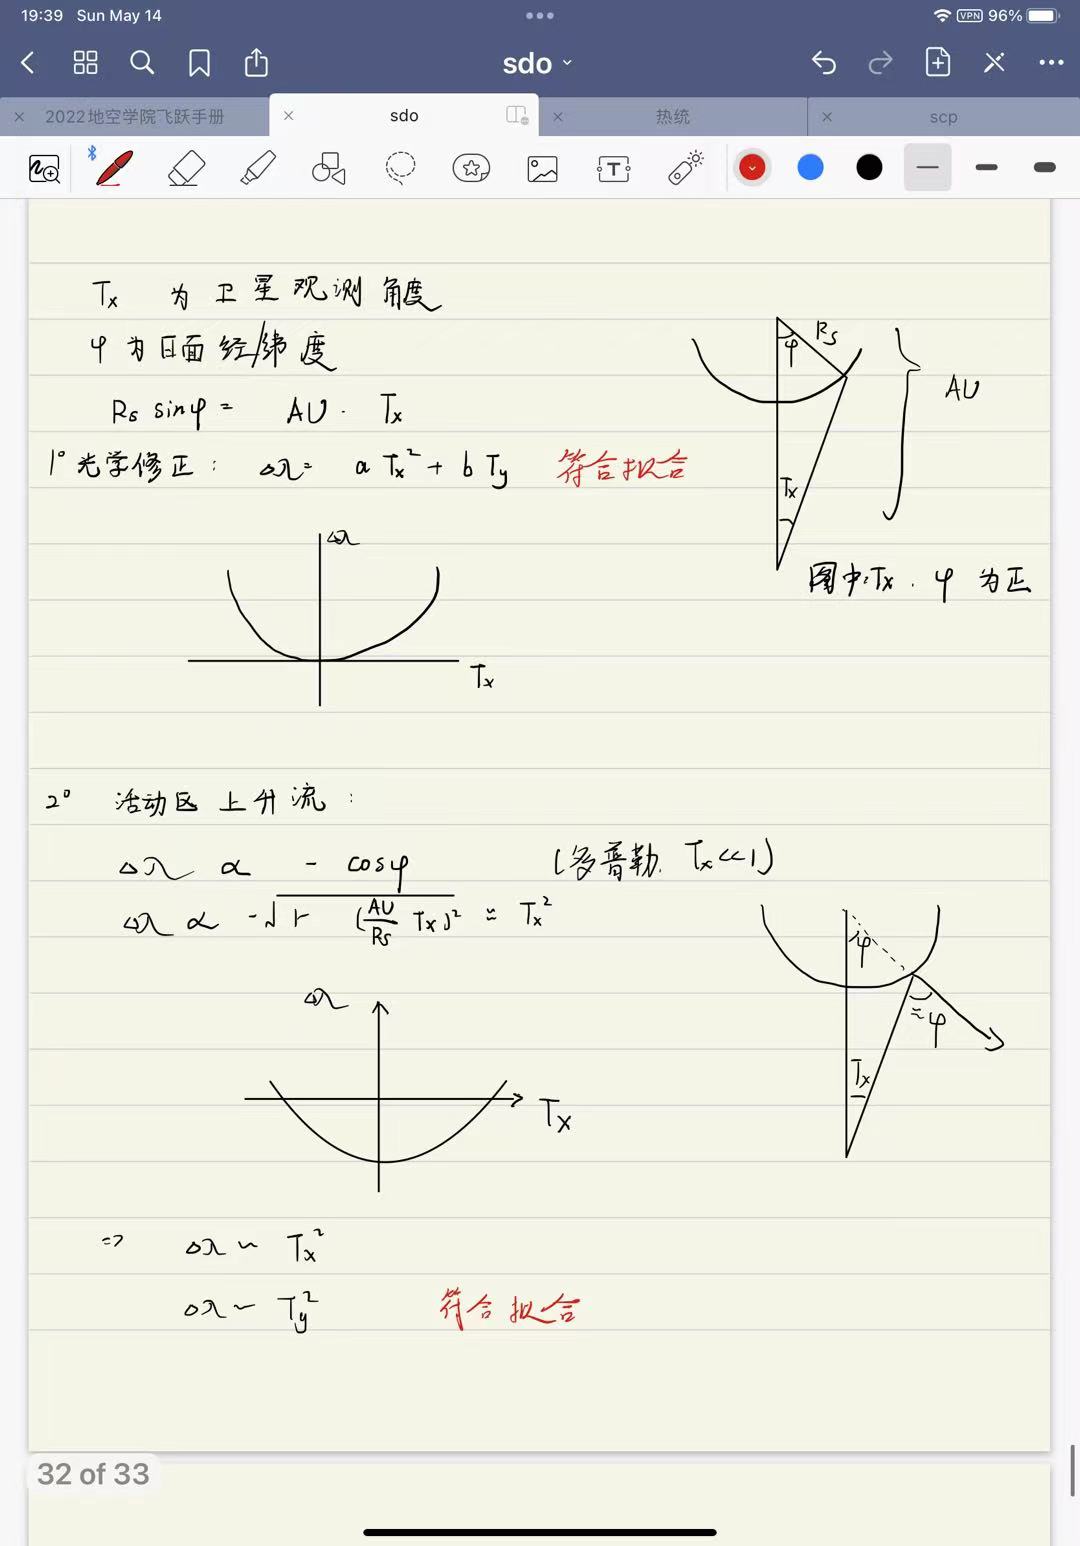 19:39 Sun May 14
VPN 96%
sdo
2022地空学院飞跃手册
sdo
热统
scp
Tx 为卫星观测角度
φ 为日面经/纬度
Rs sinφ = AU · Tx
1° 光学修正: Δλ = a Tx² + b Ty 符合拟合
Rs
φ
AU
Tx
图中Tx. φ 为正
Δλ
Tx
2° 活动区上升流:
Δλ ∝ - cosφ (多普勒. Tx<<1)
Δλ ∝ -√1- (AU/Rs Tx)² ≈ Tx²
φ
≈φ
Tx
Δλ
Tx
=> Δλ ~ Tx²
Δλ ~ Ty² 符合拟合
32 of 33